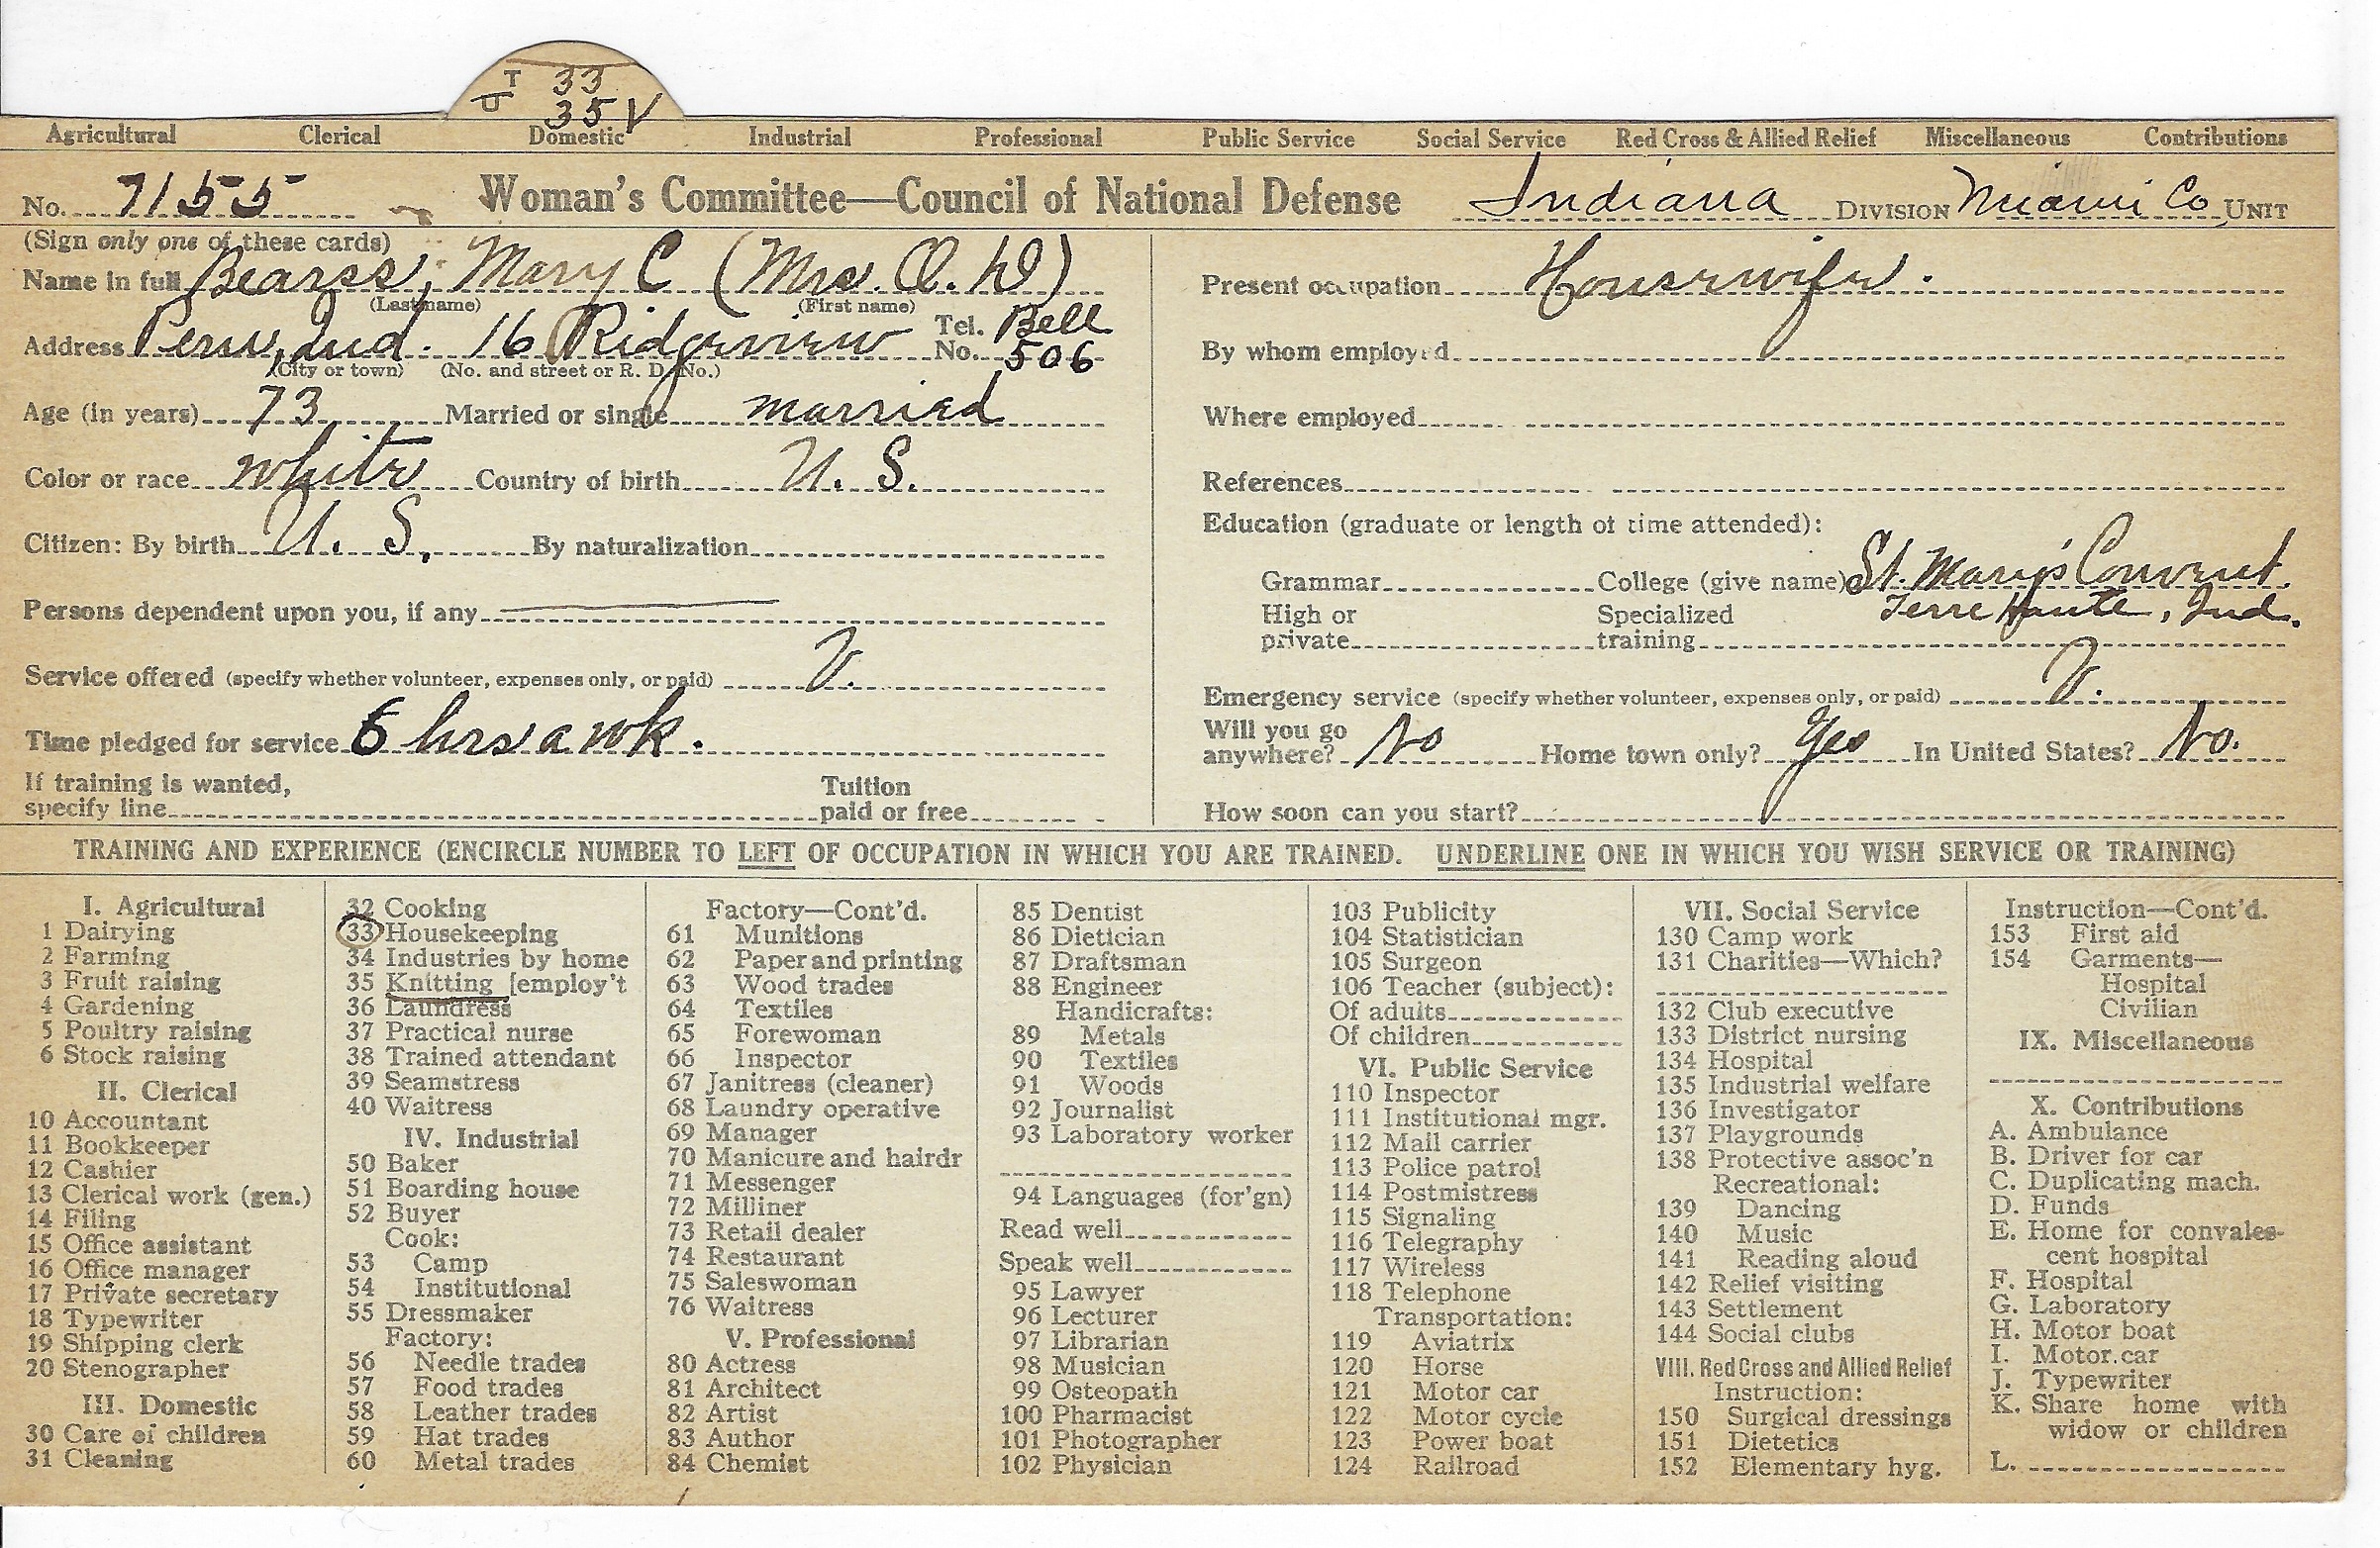 T 33
U 35 V
Agricultural Clerical Domestic Industrial Professional Public Service Social Service Red Cross & Allied Relief Miscellaneous Contributions
No. 7155 Woman's Committee—Council of National Defense Indiana DIVISION Miami Co UNIT
(Sign only one of these cards)
Name in full Bearss, Mary C (Mrs. O. W)
(Last name) (First name)
Address Peru, Ind. 16 Ridgeview Tel. No. Bell 506
(City or town) (No. and street or R. D. No.)
Age (in years) 73 Married or single married
Color or race white Country of birth U. S.
Citizen: By birth U. S. By naturalization
Persons dependent upon you, if any
Service offered (specify whether volunteer, expenses only, or paid) V.
Time pledged for service 6 hrs a wk.
If training is wanted, specify line Tuition paid or free
Present occupation Housewife.
By whom employed
Where employed
References
Education (graduate or length of time attended):
Grammar College (give name) St. Mary's Convent.
Terre Haute, Ind.
High or private Specialized training
Emergency service (specify whether volunteer, expenses only, or paid) V.
Will you go anywhere? No Home town only? Yes In United States? No.
How soon can you start?
TRAINING AND EXPERIENCE (ENCIRCLE NUMBER TO LEFT OF OCCUPATION IN WHICH YOU ARE TRAINED. UNDERLINE ONE IN WHICH YOU WISH SERVICE OR TRAINING)
I. Agricultural
1 Dairying
2 Farming
3 Fruit raising
4 Gardening
5 Poultry raising
6 Stock raising
II. Clerical
10 Accountant
11 Bookkeeper
12 Cashier
13 Clerical work (gen.)
14 Filing
15 Office assistant
16 Office manager
17 Private secretary
18 Typewriter
19 Shipping clerk
20 Stenographer
III. Domestic
30 Care of children
31 Cleaning
32 Cooking
33 Housekeeping
34 Industries by home
35 Knitting [employ't
36 Laundress
37 Practical nurse
38 Trained attendant
39 Seamstress
40 Waitress
IV. Industrial
50 Baker
51 Boarding house
52 Buyer
Cook:
53 Camp
54 Institutional
55 Dressmaker
Factory:
56 Needle trades
57 Food trades
58 Leather trades
59 Hat trades
60 Metal trades
Factory—Cont'd.
61 Munitions
62 Paper and printing
63 Wood trades
64 Textiles
65 Forewoman
66 Inspector
67 Janitress (cleaner)
68 Laundry operative
69 Manager
70 Manicure and hairdr
71 Messenger
72 Milliner
73 Retail dealer
74 Restaurant
75 Saleswoman
76 Waitress
V. Professional
80 Actress
81 Architect
82 Artist
83 Author
84 Chemist
85 Dentist
86 Dietician
87 Draftsman
88 Engineer
Handicrafts:
89 Metals
90 Textiles
91 Woods
92 Journalist
93 Laboratory worker
94 Languages (for'gn)
Read well
Speak well
95 Lawyer
96 Lecturer
97 Librarian
98 Musician
99 Osteopath
100 Pharmacist
101 Photographer
102 Physician
103 Publicity
104 Statistician
105 Surgeon
106 Teacher (subject):
Of adults
Of children
VI. Public Service
110 Inspector
111 Institutional mgr.
112 Mail carrier
113 Police patrol
114 Postmistress
115 Signaling
116 Telegraphy
117 Wireless
118 Telephone
Transportation:
119 Aviatrix
120 Horse
121 Motor car
122 Motor cycle
123 Power boat
124 Railroad
VII. Social Service
130 Camp work
131 Charities—Which?
132 Club executive
133 District nursing
134 Hospital
135 Industrial welfare
136 Investigator
137 Playgrounds
138 Protective assoc'n
Recreational:
139 Dancing
140 Music
141 Reading aloud
142 Relief visiting
143 Settlement
144 Social clubs
VIII. Red Cross and Allied Relief
Instruction:
150 Surgical dressings
151 Dietetics
152 Elementary hyg.
Instruction—Cont'd.
153 First aid
154 Garments—
Hospital
Civilian
IX. Miscellaneous
X. Contributions
A. Ambulance
B. Driver for car
C. Duplicating mach.
D. Funds
E. Home for convales-
cent hospital
F. Hospital
G. Laboratory
H. Motor boat
I. Motor car
J. Typewriter
K. Share home with
widow or children
L.